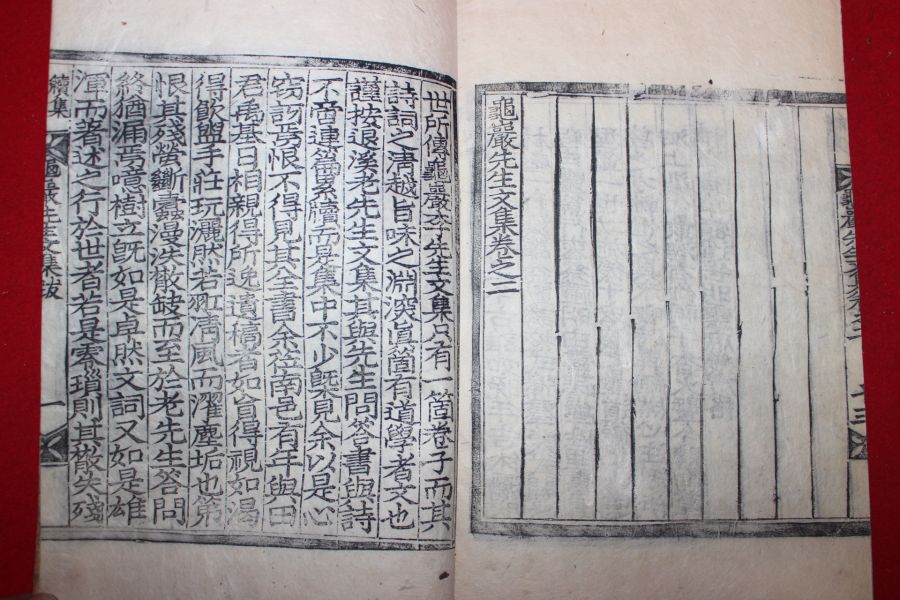 龜巖先生文集卷之二
世所傳龜巖李先生文集只有一箇卷子而其
詩詞之淸越旨味之淵深眞箇有道學者文也
謹按退溪老先生文集其與先生問答書與詩
不啻連篇累牘而是集中不少槩見余以是心
竊訝焉恨不得見其全書余莅南邑有年與田
君禹基日相親得所逸遺稿者如盲得視如渴
得飮盥手莊玩灑然若挹淸風而濯塵垢也第
恨其殘螢斷蠹漫泆散缺而至於老先生答問
終猶漏焉噫樹立旣如是卓然文詞又如是雄
渾而著述之行於世者若是零瑣則其散失殘
續集 龜巖先生文集跋 一